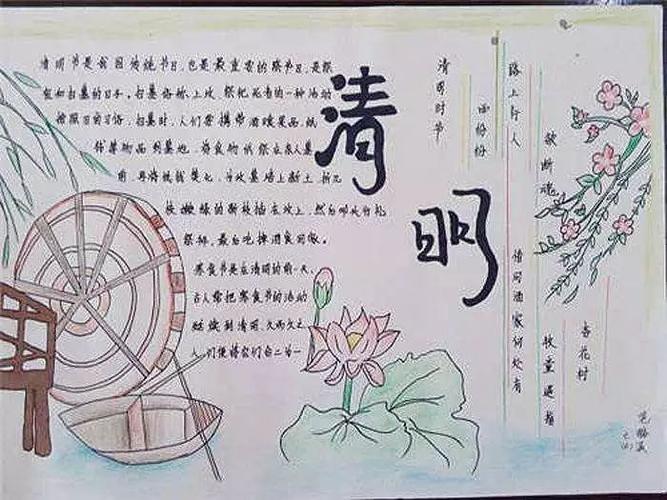 清明节是我国传统节日,也是最重要的祭节日,是祭
祖和扫墓的日子。扫墓俗称上坟,祭祀死者的一种活动
按照旧的习俗,扫墓时,人们要携带酒食果品纸
钱等物品到墓地,将食物供祭在亲人墓
前,再将纸钱焚化,为坟墓培上新土,折几
枝嫩绿的新枝插在坟上,然后叩头行礼
祭拜,最后吃掉酒食回家。
寒食节是在清明的前一天,
古人常把寒食节的活动
延续到清明,久而久之,
人们便将它们合二为一
清明
清明时节
雨纷纷
路上行人
欲断魂
借问酒家何处有
牧童遥指
杏花村